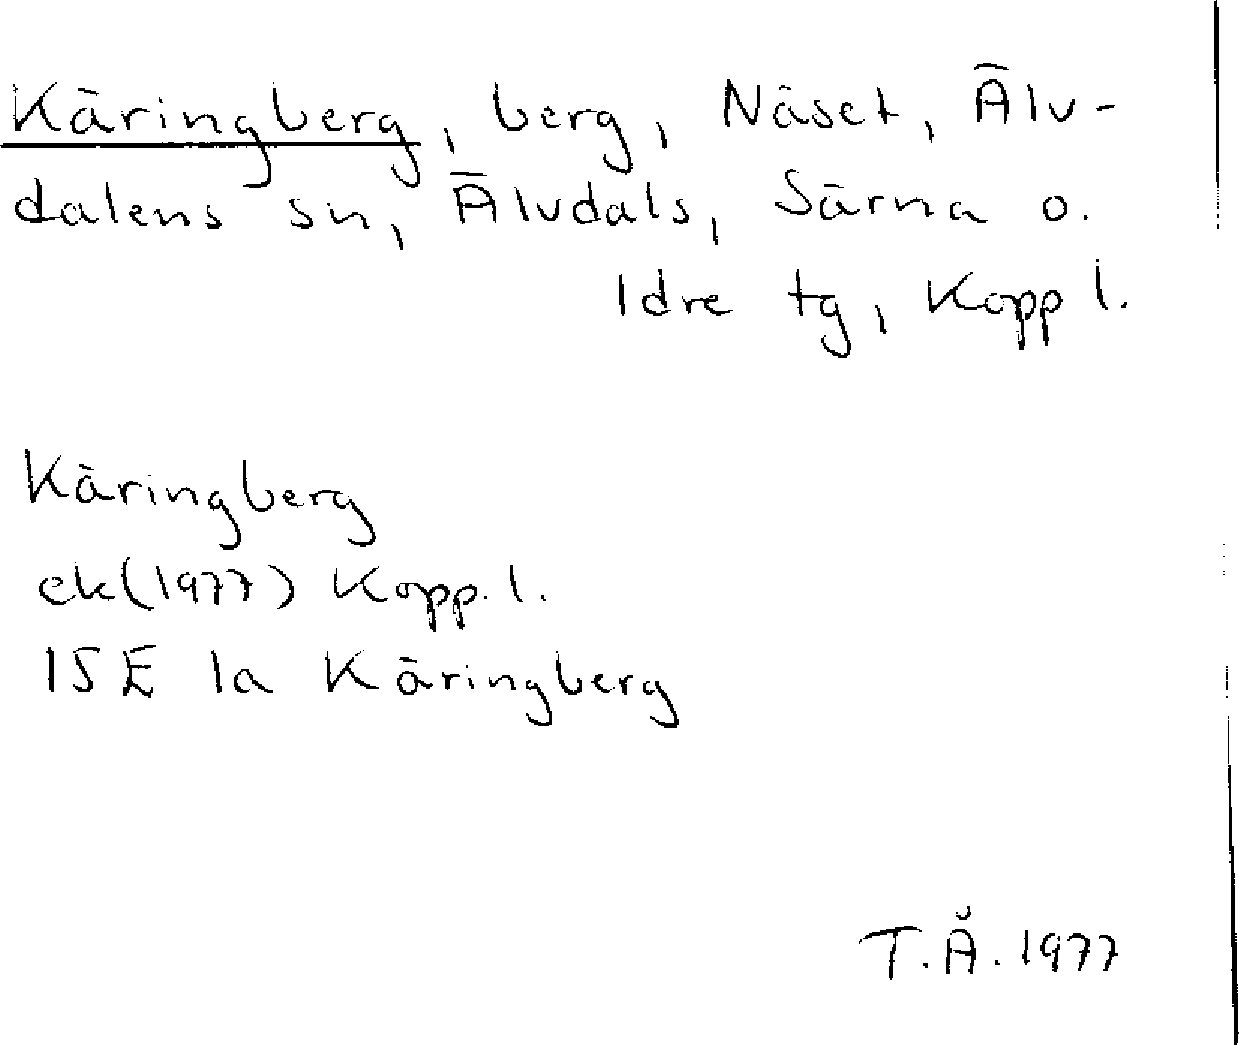 Käringberg, berg, Näset, Älv-
dalens sn, Älvdals, Särna o.
Idre tg, Kopp l.
Käringberg
ek(1977) Kopp. l.
15 E 1a Käringberg
T.Å. 1977